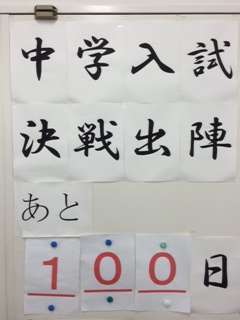 中学入試
決戦出陣
あと
100日